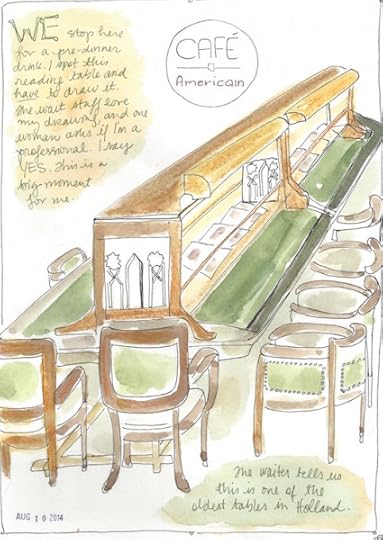 WE stop here
for a pre-dinner
drink. I spot this
reading table and
have to draw it.
The wait staff love
my drawing, and one
woman asks if I'm a
professional. I say
YES. This is a
big moment
for me.
CAFÉ
Americain
The waiter tells us
this is one of the
oldest tables in Holland.
AUG 10 2014